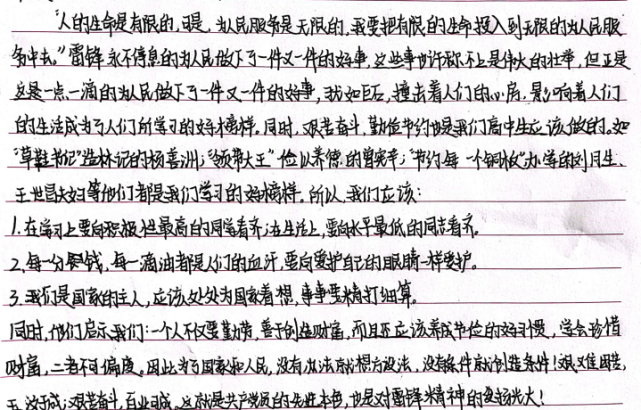 “人的生命是有限的,可是,为人民服务是无限的,我要把有限的生命投入到无限的为人民服
务中去。”雷锋永不停息的为人民做下了一件又一件的好事,这些事也许称不上是伟大的壮举,但正是
这是一点一滴的为人民做下了一件又一件的好事,我如巨石,撞击着人们的心房,影响着人们
的生活成为了人们所学习的好榜样。同时,艰苦奋斗,勤俭节约也是我们高中生应该做的。如
“草鞋书记”造林记的杨善洲;“领带大王”俭以养德的曾宪梓;“节约每一个铜板”办学的刘月生、
王世昌夫妇等他们都是我们学习的好榜样。所以,我们应该:
1.在学习上要向积极性最高的同学看齐,在生活上,要向水平最低的同志看齐。
2.每一分银钱,每一滴油都是人们的血汗,要向爱护自己的眼睛一样爱护。
3.我们是国家的主人,应该处处为国家着想,事事要精打细算。
同时,他们启示我们:一个人不仅要勤劳,善于创造财富,而且还应该养成节俭的好习惯,学会珍惜
财富,二者不可偏废。因此为了国家和人民,没有办法就想方设法,没有条件就创造条件!艰难困苦,
玉汝于成;艰苦奋斗,百业可成。这就是共产党员的先进本色,也是对雷锋精神的发扬光大!